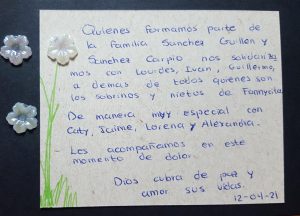 Quienes formamos parte de
la familia Sanchez Guillen y
Sanchez Carpio nos solidariza
mos con Lourdes, Ivan, Guillermo,
a demas de todos quienes son
los sobrinos y nietos de Fannycita.
De manera muy especial con
Caty, Jaime, Lorena y Alexandra.
Les acompañamos en este
momento de dolor.
Dios cubra de paz y
amor sus vidas.
12-04-21